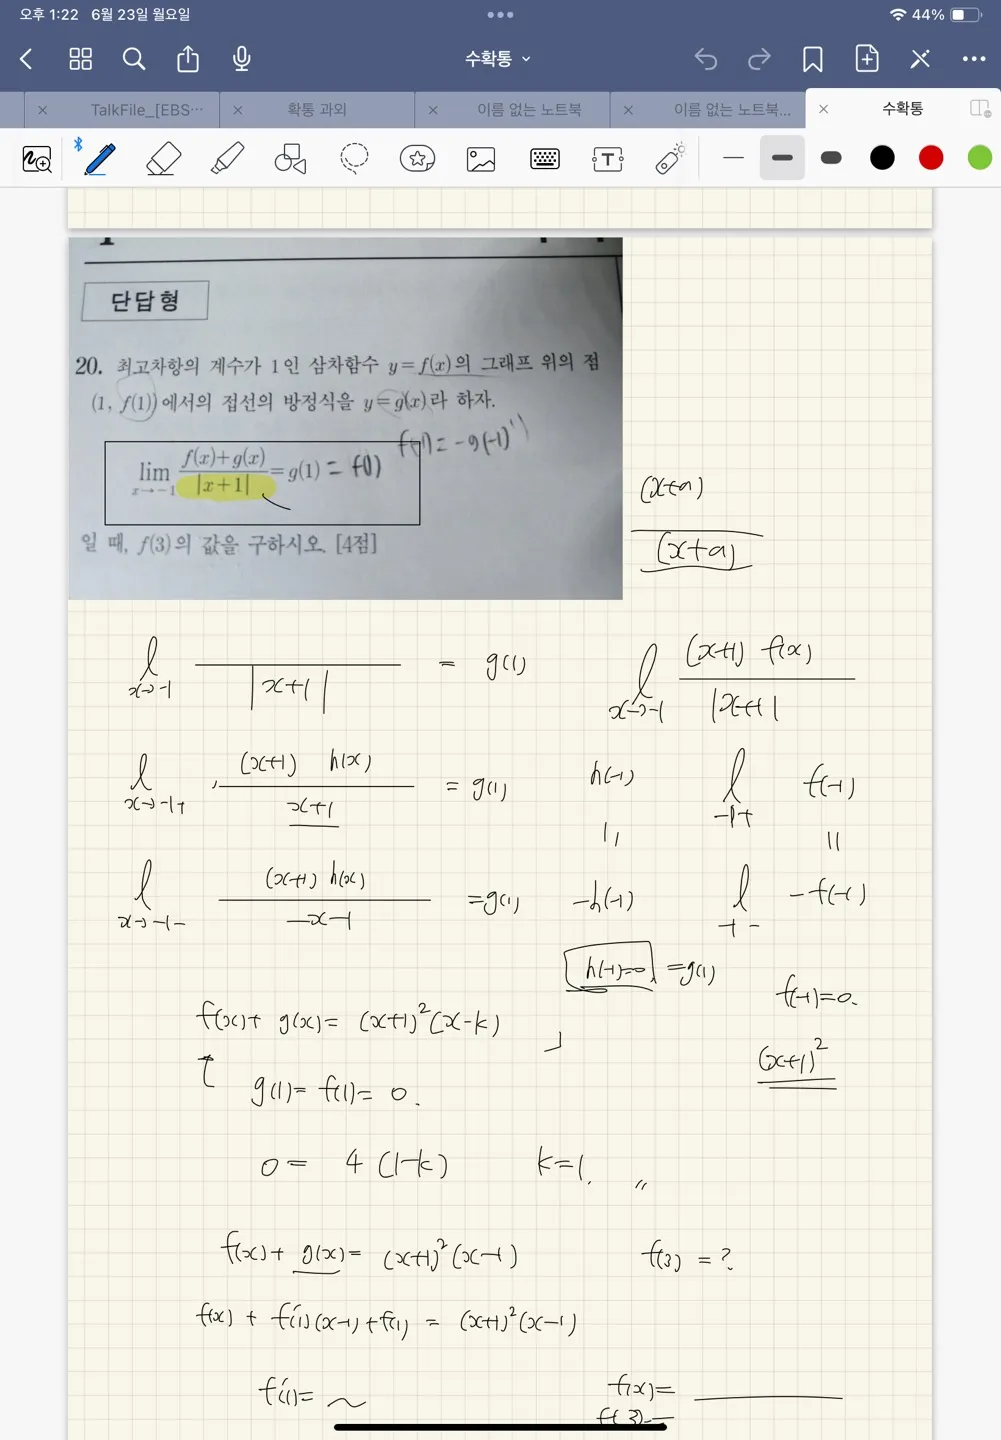 오후 1:22 6월 23일 월요일
44%
수확통
TalkFile_[EBS···
확통 과외
이름 없는 노트북
이름 없는 노트북...
수확통
단답형
20. 최고차항의 계수가 1인 삼차함수 y=f(x)의 그래프 위의 점
(1, f(1))에서의 접선의 방정식을 y=g(x)라 하자.
f(-1) = -g(-1)
lim x→-1 (f(x)+g(x))/|x+1| = g(1) = f(1)
일 때, f(3)의 값을 구하시오. [4점]
(x+a)
(x+a)
l x→-1 /|x+1| = g(1)
l x→-1 (x+1) f(x)/|x+1|
l x→-1+ (x+1) h(x)/x+1 = g(1) h(-1)
l -1+ f(-1)
l x→-1- (x+1) h(x)/-x-1 = g(1) -h(-1)
l -1- -f(-1)
h(-1)=0 = g(1)
f(-1)=0.
f(x)+ g(x)= (x+1)²(x-k)
(x+1)²
g(1)= f(1)= 0.
0 = 4 (1-k) k=1.
f(x)+ g(x)= (x+1)²(x-1) f(3) = ?
f(x) + f'(1)(x-1)+f(1) = (x+1)²(x-1)
f'(1)= ~ f(x)=
f(3)=